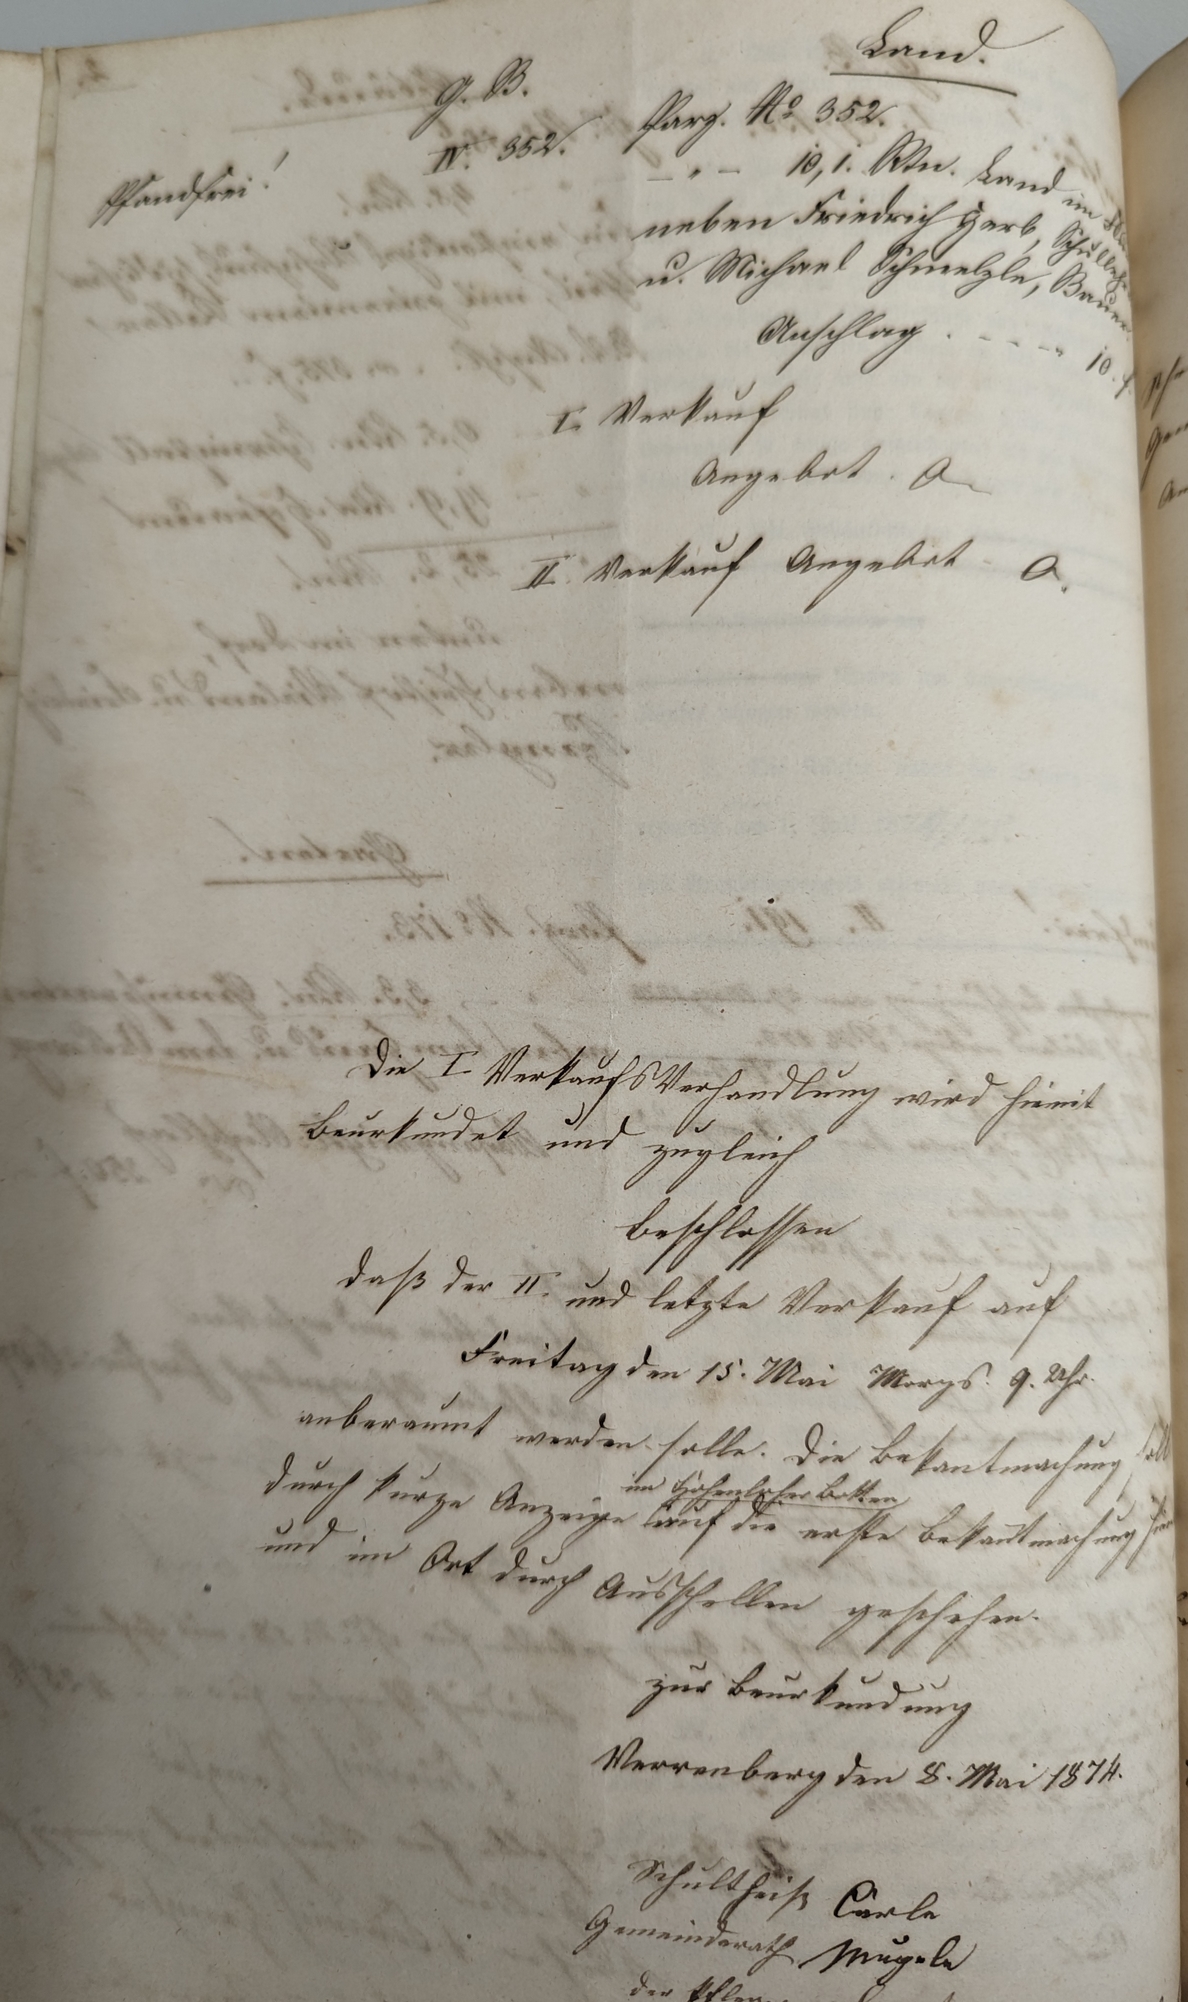 Land.
G. B.
Pfandfrei! IV. 352. Parz. No 352.
10,1. Rtn. Land im
neben Friedrich Herb, Schulleh
u. Michael Schmelzle, Bauer
Anschlag . - - - - 10. f.
I. Verkauf
Angebot . O
II. Verkauf Angebot - O.
Die I. Verkaufs Verhandlung wird hiemit
beurkundet und zugleich
beschlossen
daß der II. und letzte Verkauf auf
Freitag den 15. Mai Morgs. 9. Uhr.
anberaumt werden solle. Die Bekantmachung soll
im Hohenloher Botten
durch kurze Anzeige auf die erste Bekantmachung hin
und im Ort durch Ausschellen geschehen.
zur Beurkundung
Verrenberg den 8. Mai 1874.
Schultheiß Carle
Gemeinderath Mugele
der